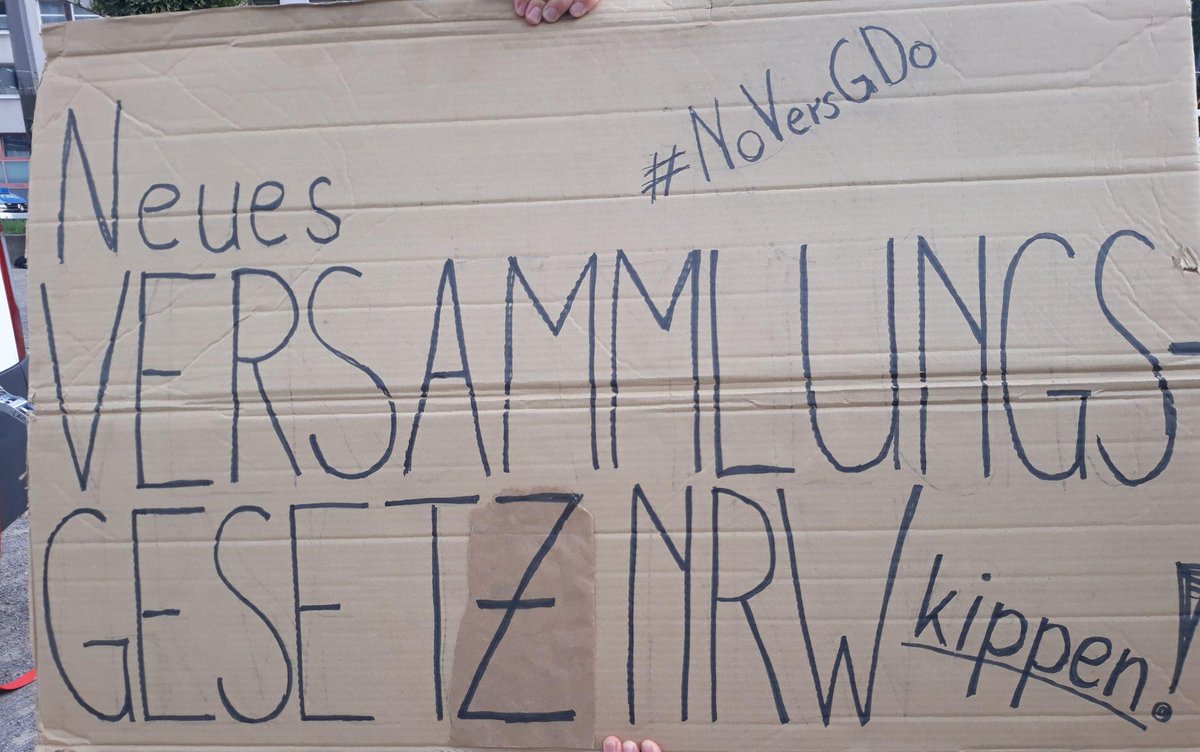 #NoVersGDo
Neues
VERSAMMLUNGS-
GESETZ NRW kippen!